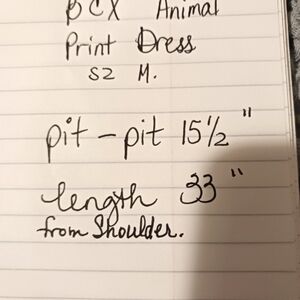 BCX Animal
Print Dress
SZ M.
pit - pit 15 1/2 "
length 33 "
from Shoulder.